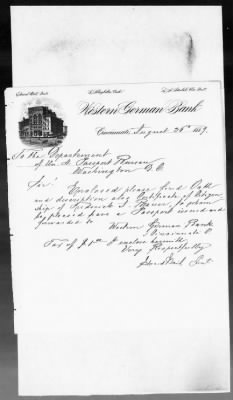 Western German Bank
Cincinnati, August 26th 1889.
To the Department
of the Passport Bureau
Washington D.C.
Sir:
Enclosed please find Oath
and description also Certificate of Citizen
ship of Frederick to whom
be pleased have a Passport issued and
forwarded to Western German Bank
Cincinnati O
Tax of I enclose herewith
Very Respectfully